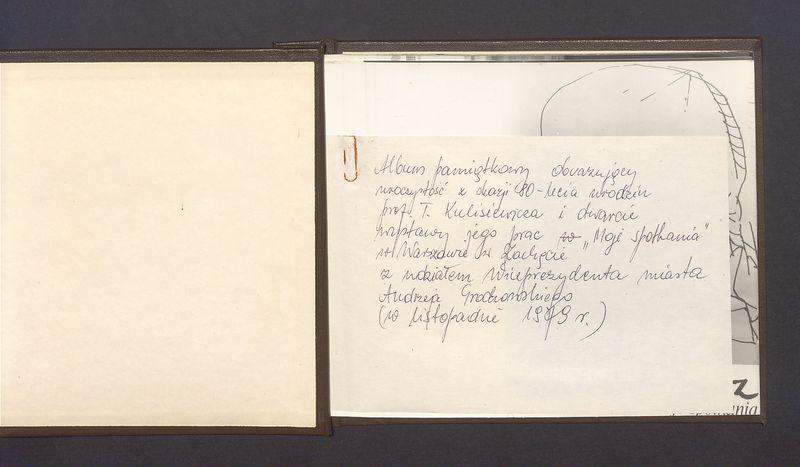 Album pamiątkowy obrazujący
uroczystość z okazji 80-lecia urodzin
prof. T. Kulisiewicza i otwarcie
wystawy jego prac "Moje spotkania"
w Warszawie w Zachęcie
z udziałem Wiceprezydenta miasta
Andrzeja Grodzowskiego
(w listopadzie 1979 r.)
z